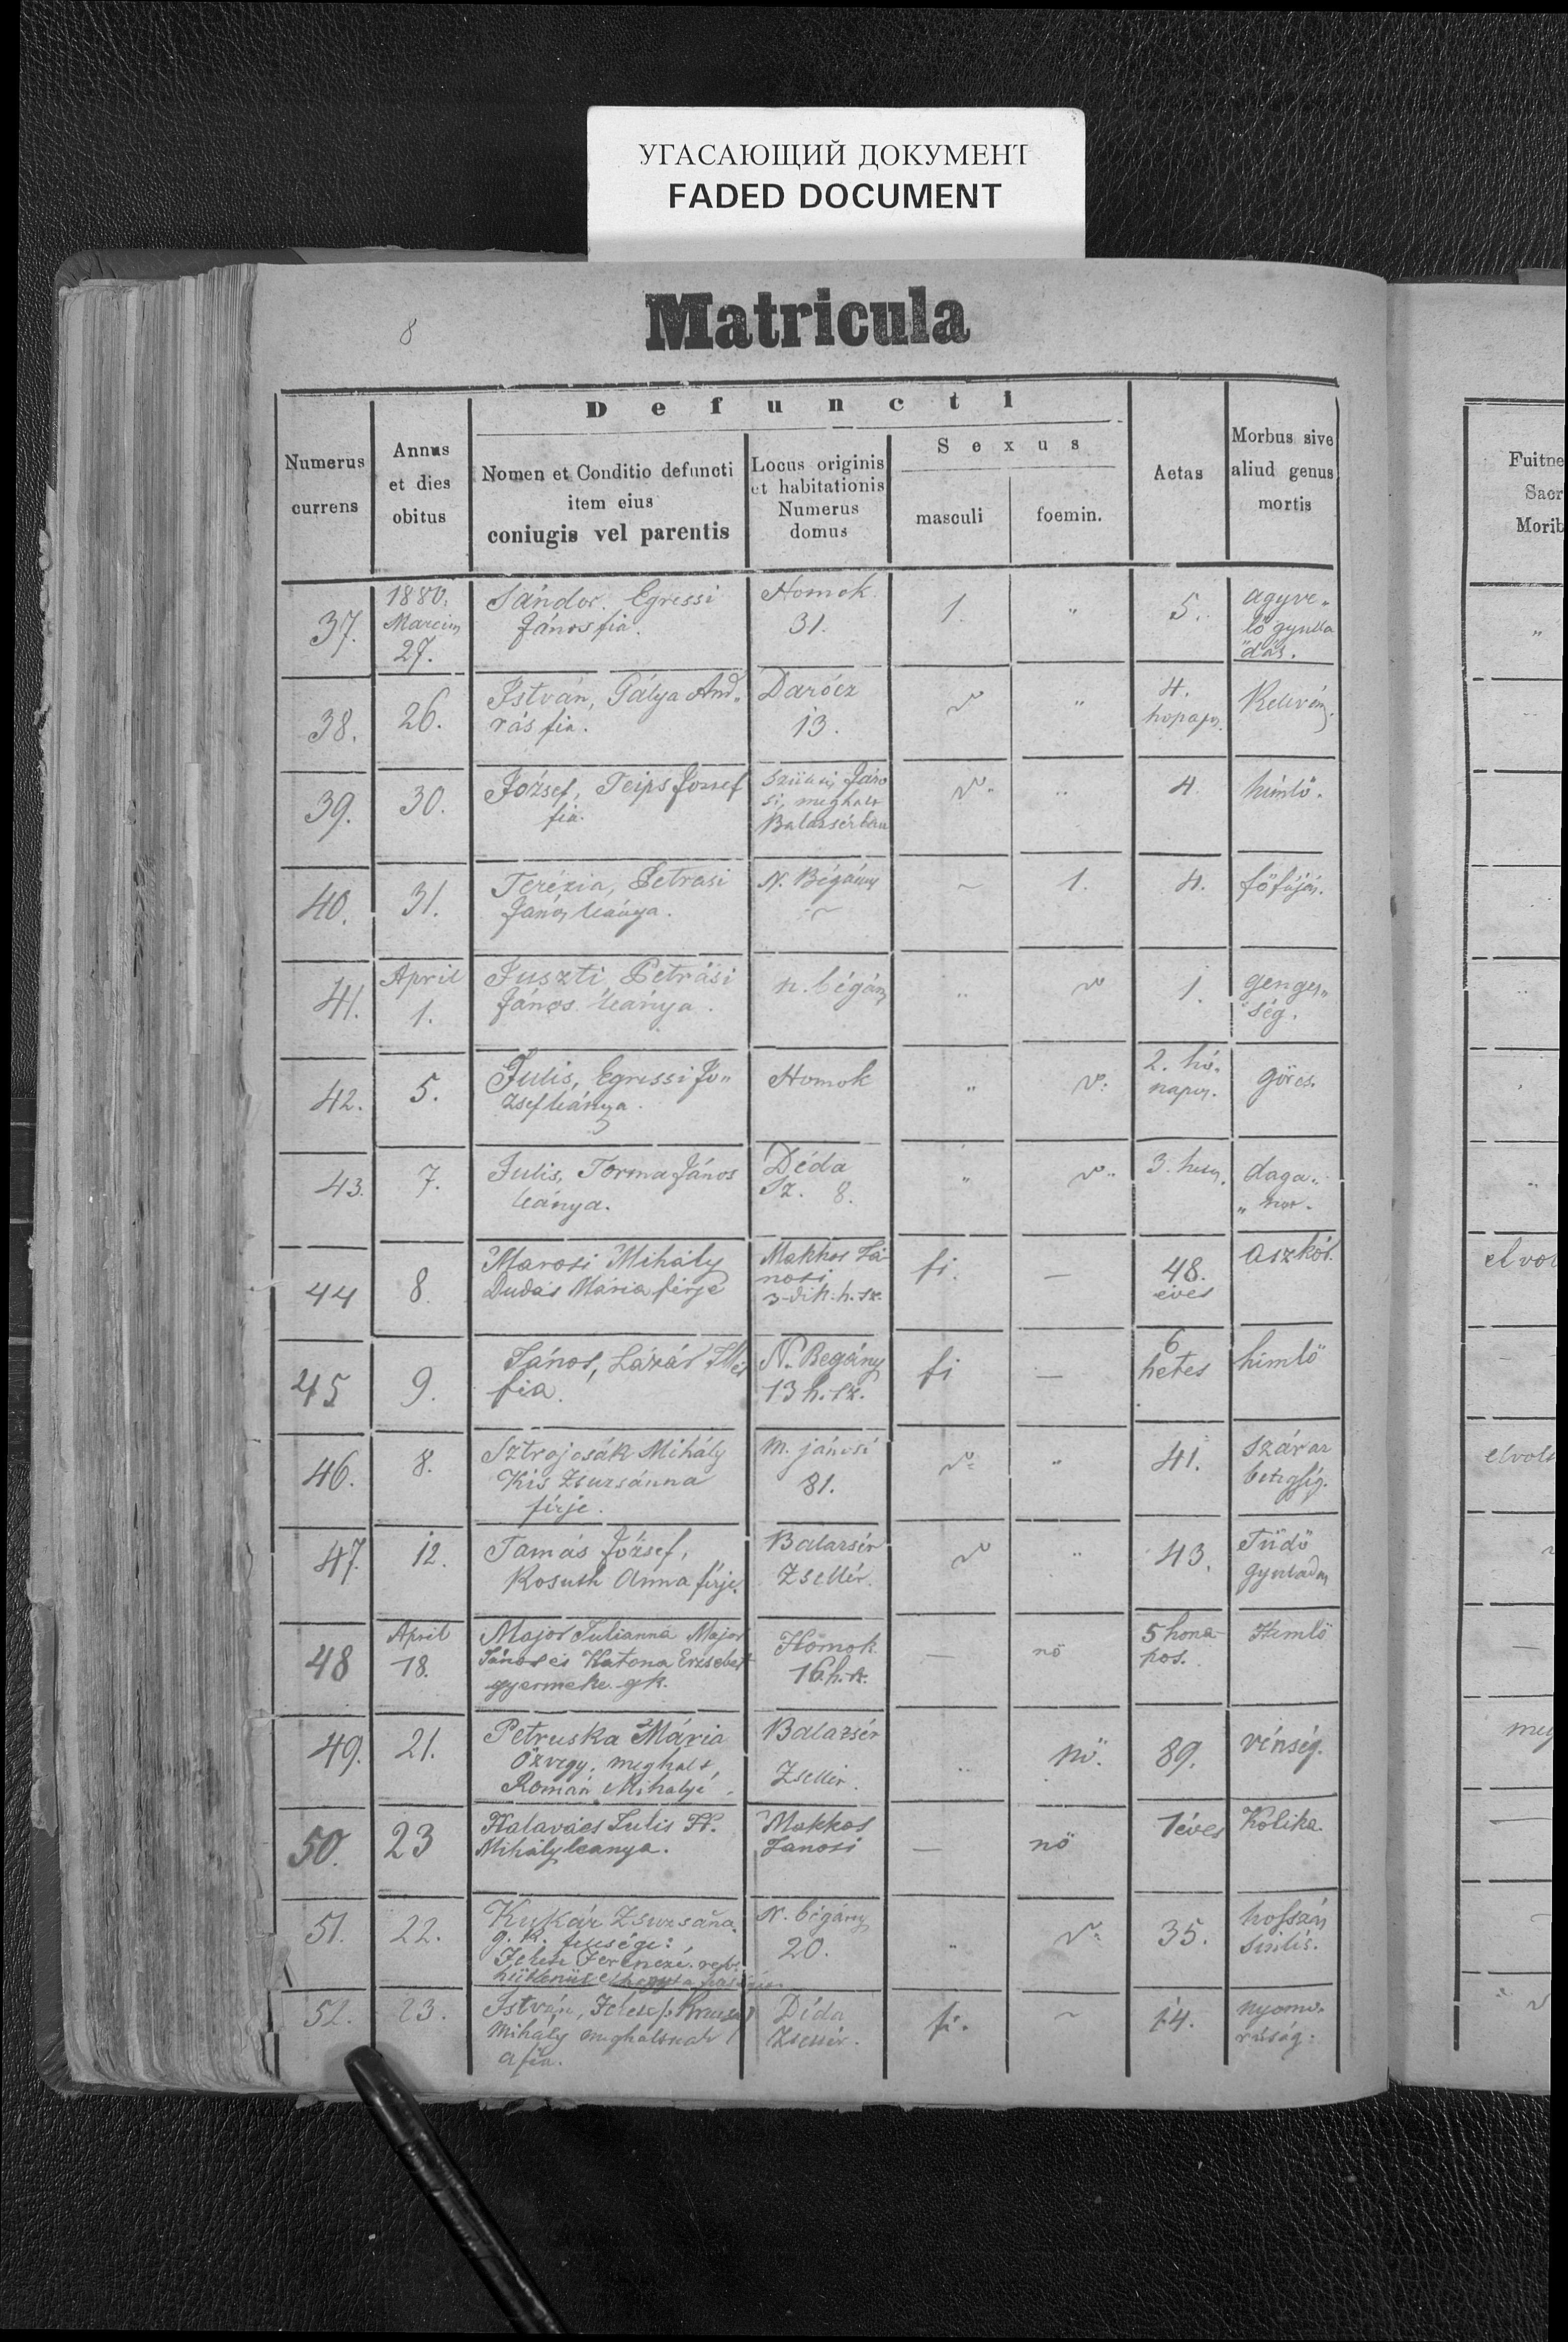 УГАСАЮЩИЙ ДОКУМЕНТ
FADED DOCUMENT
8
Matricula
Defuncti
Numerus currens
Annus et dies obitus
Nomen et Conditio defuncti item eius coniugis vel parentis
Locus originis et habitationis Numerus domus
Sexus
masculi
foemin.
Aetas
Morbus sive aliud genus mortis
Fuitne
Sacr
Morib
37. 1880. 27. Sándor. Egressi János fia. Homok 31. 1. " 5. agyve„
38. 26. István, Pálya And„ rás fia. Darócz 13. " 4.
39. 30. József, József fia. meghalt Balazsérban " 4. himlő.
40. 31. Terézia, Petrasi János leánya. N. Bégány ~ 1. 4. főfájás.
41. April 1. Juszti Petrási János leánya. n. bégány " 1. ség.
42. 5. Julis, Egressi Jó„ zsef leánya. Homok " 2. hó„ napos. görcs.
43. 7. Julis, Torma János leánya. Déda Sz. 8. " 3. daga„
44 8. Marosi Mihály Dudás Mária férje Makkos Já nosi 3-dik h. sz. fi. — 48. éves aszkór.
45 9. János, Lázár Illés fia. N. Begány 13 h. sz. fi — 6 hetes himlő
46. 8. Sztrojcsák Mihály Kis Zsuzsánna férje. M. jánosi 81. " 41. száraz betegség.
47. 12. Tamás József, Kosuth Anna férje. Balazsér Zsellér. " 43. Tüdő gyuladás
48 April 18. Major Julianna Major János és Katona Erzsebet gyermeke gk. Homok 16 h. sz. — nő 5 hona- pos. Himlő
49. 21. Petruska Mária Özvegy, meghalt, Román Mihályé. Balazsér Zsellér. " nő. 89. vénség.
50. 23 Halavács Julis H. Mihály leanya. Makkos Janosi — nő 1 éves Kolika.
51. 22. Kukár Zsuzsána. g. k. N. bégány 20. " 35. hosszas
52. 23. István, Mihály a fia. Déda Zsellér. fi. ~ 14. nyomo„ rúság.